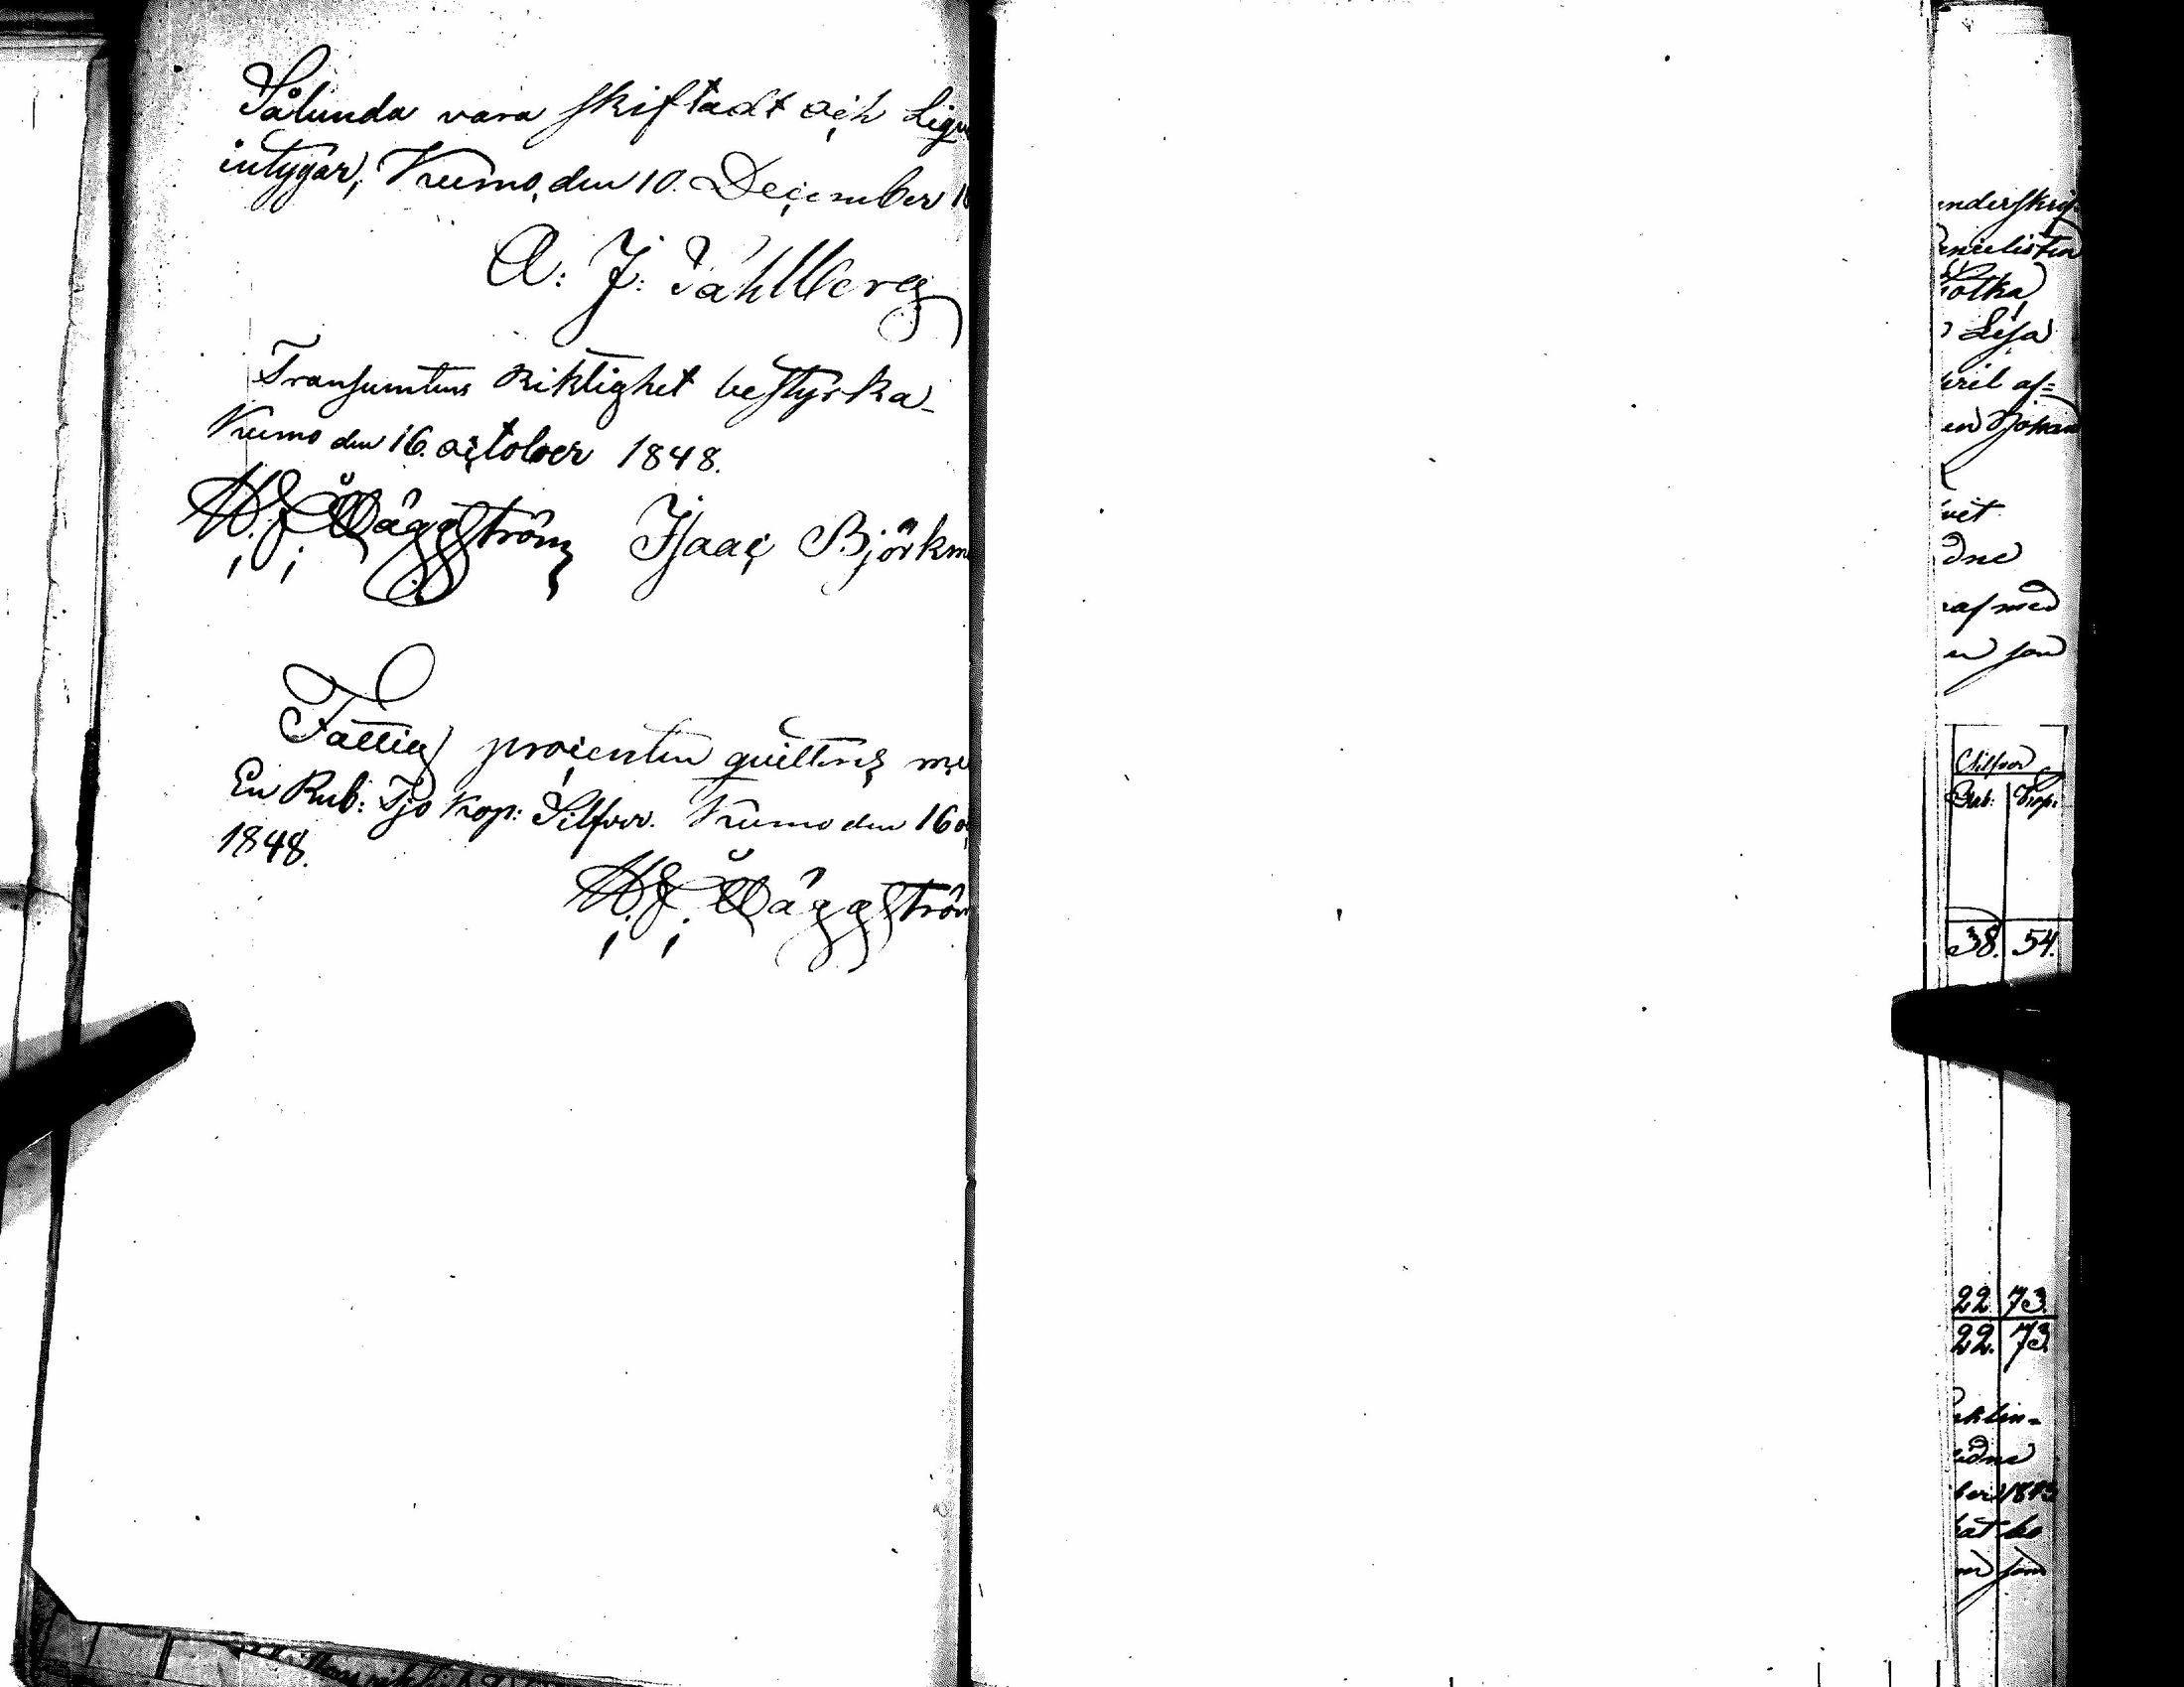 Sålunda vara skiftadt och Liqv
intygar, Kumo, den 10. December 18
A: J: Sahlberg
Transumtens Riktighet bestyrka
Kumo den 16. october 1848.
Häggström Isaac Björkm
Fattig procenten quitteras me
En Rub: Tjo Kop: Silfver. Kumo den 16 o
1848.
Häggström
underskrif
Lisa
af=
en Johan
vet
af med
som
Silfver
Rub: Kop:
38. 54.
22. 73.
22. 73.
ber 1843
som